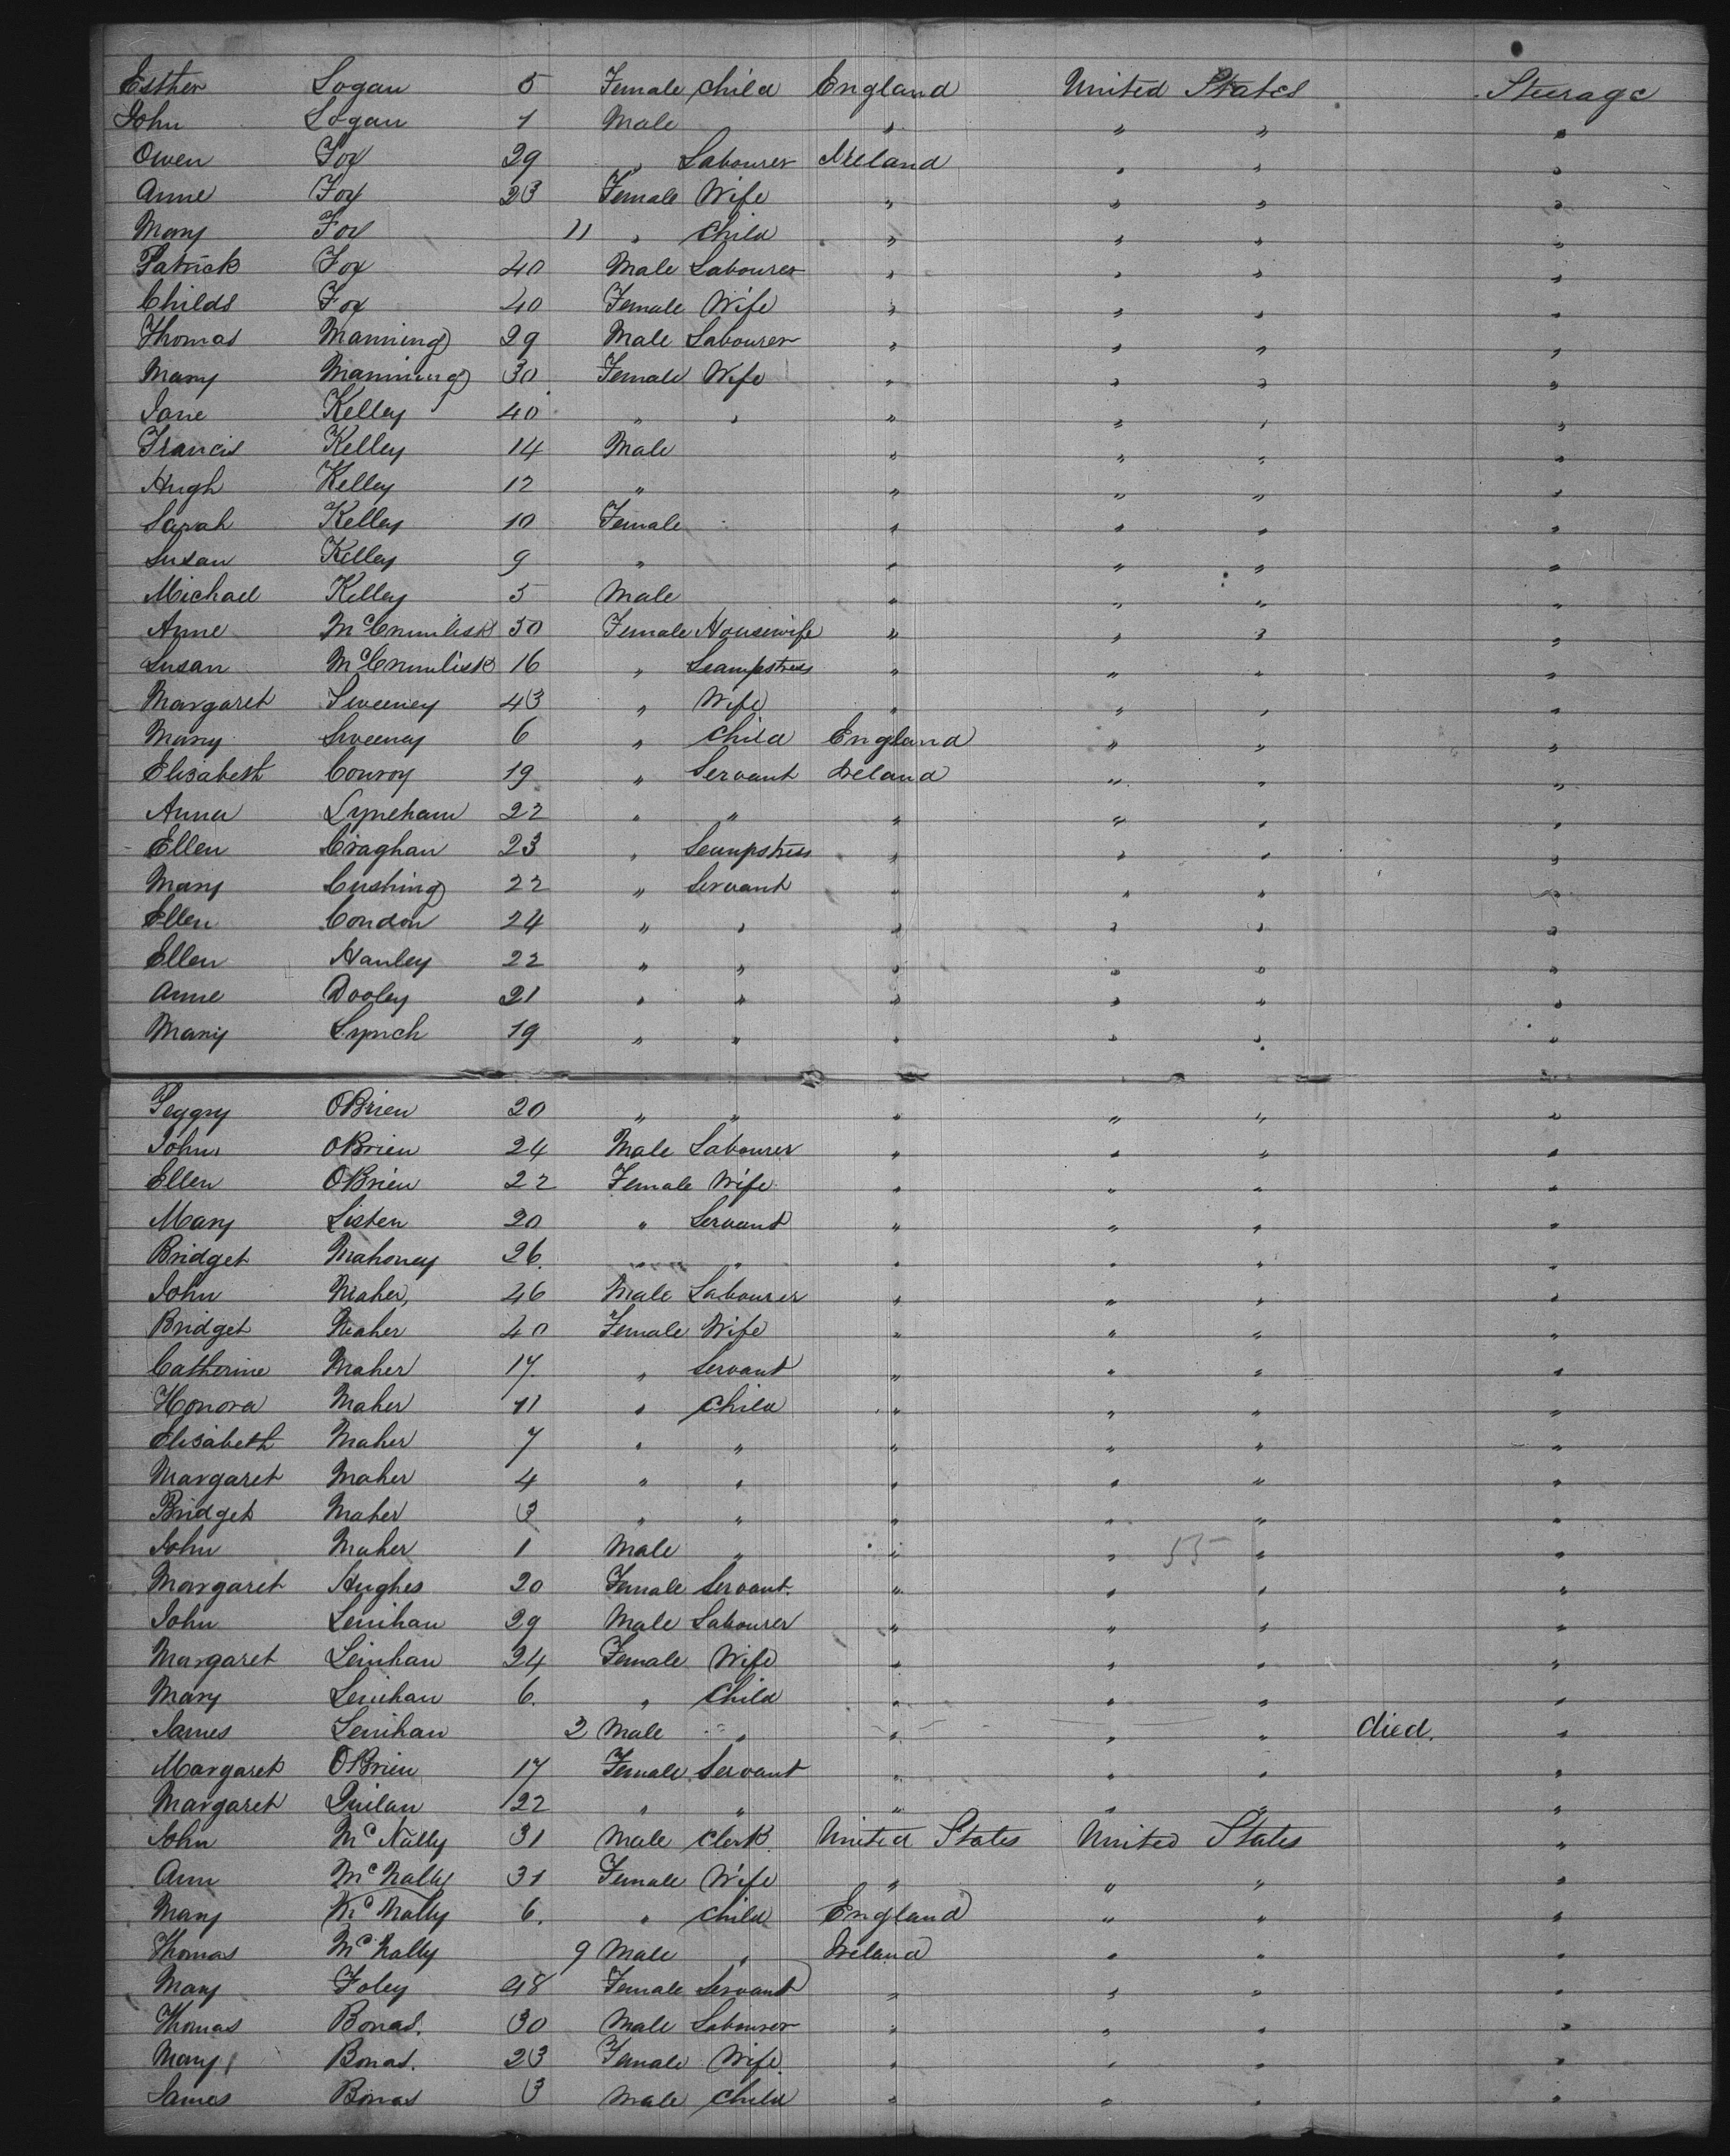 Esther Logan 5 Female Child England United States Steerage
John Logan 1 Male " " " "
Owen Fox 29 " Labourer Ireland " " "
Anne Fox 23 Female Wife " " " "
Mary Fox 11 " Child " " " "
Patrick Fox 40 Male Labourer " " " "
Childs Fox 40 Female Wife " " " "
Thomas Manning 29 Male Labourer " " " "
Mary Manning 30 Female Wife " " " "
Jane Kelley 40 " " " " " "
Francis Kelley 14 Male " " " "
Hugh Kelley 12 " " " " "
Sarah Kelley 10 Female " " " "
Susan Kelley 9 " " " " "
Michael Kelley 5 Male " " " "
Anne 50 Female Housewife " " " "
Susan 16 " Seampstress " " " "
Margaret Sweeney 43 " Wife " " " "
Mary Sweeney 6 " Child England " " "
Elisabeth Conroy 19 " Servant Ireland " " "
Anna Lyneham 22 " " " " " "
Ellen Craghan 23 " Seampstress " " " "
Mary Cushing 22 " Servant " " " "
Ellen Condon 24 " " " " " "
Ellen Hanley 22 " " " " " "
Anne Dooley 21 " " " " " "
Mary Lynch 19 " " " " " "
Peggy OBrien 20 " " " " " "
John OBrien 24 Male Labourer " " " "
Ellen OBrien 22 Female Wife " " " "
Mary Listen 20 " Servant " " " "
Bridget Mahoney 26. " " " " " "
John Maher 46 Male Labourer " " " "
Bridget Maher 40 Female Wife " " " "
Catherine Maher 17. " Servant " " " "
Honora Maher 11 " Child " " " "
Elisabeth Maher 7 " " " " " "
Margaret Maher 4 " " " " " "
Bridget Maher 3 " " " " " "
John Maher 1 Male " " " 55 " "
Margaret Hughes 20 Female Servant. " " " "
John Lenihan 29 Male Labourer " " " "
Margaret Lenihan 24 Female Wife " " " "
Mary Lenihan 6. " Child " " " "
James Lenihan 2 Male " " " " died. "
Margaret OBrien 17 Female Servant " " " "
Margaret Quilan 22 " " " " " "
John McNally 31 Male Clerk. United States United States "
Ann McNally 31 Female Wife " " " "
Mary McNally 6. " Child England " " "
Thomas McNally 9 Male " Ireland " " "
Mary Foley 48 Female Servant " " " "
Thomas Bonas. 30 Male Labourer " " " "
Mary Bonas. 23 Female Wife " " " "
James Bonas 3 Male Child " " " "